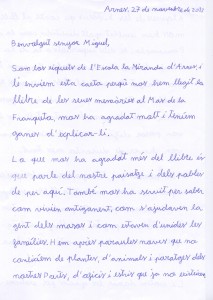 Arnes, 27 de novembre de
Benvolgut senyor Miquel,
Som los xiquets de l'Escola La Miranda d'Arnes, i
li enviem esta carta perquè mos hem llegit lo
llibre de les seues memòries al Mas de la
Franqueta, mos ha agradat molt i teníem
ganes d'explicar-li.
Lo que mos ha agradat més del llibre és
que parla del nostre paisatge i dels pobles
de per aquí. També mos ha servit per saber
com vivien antigament, com s'ajudaven la
gent dels masos i com estaven d'unides les
famílies. Hem après paraules noves que no
coneixíem de plantes, d'animals i paratges dels
nostres Ports, d'oficis i estris que ja no existixen